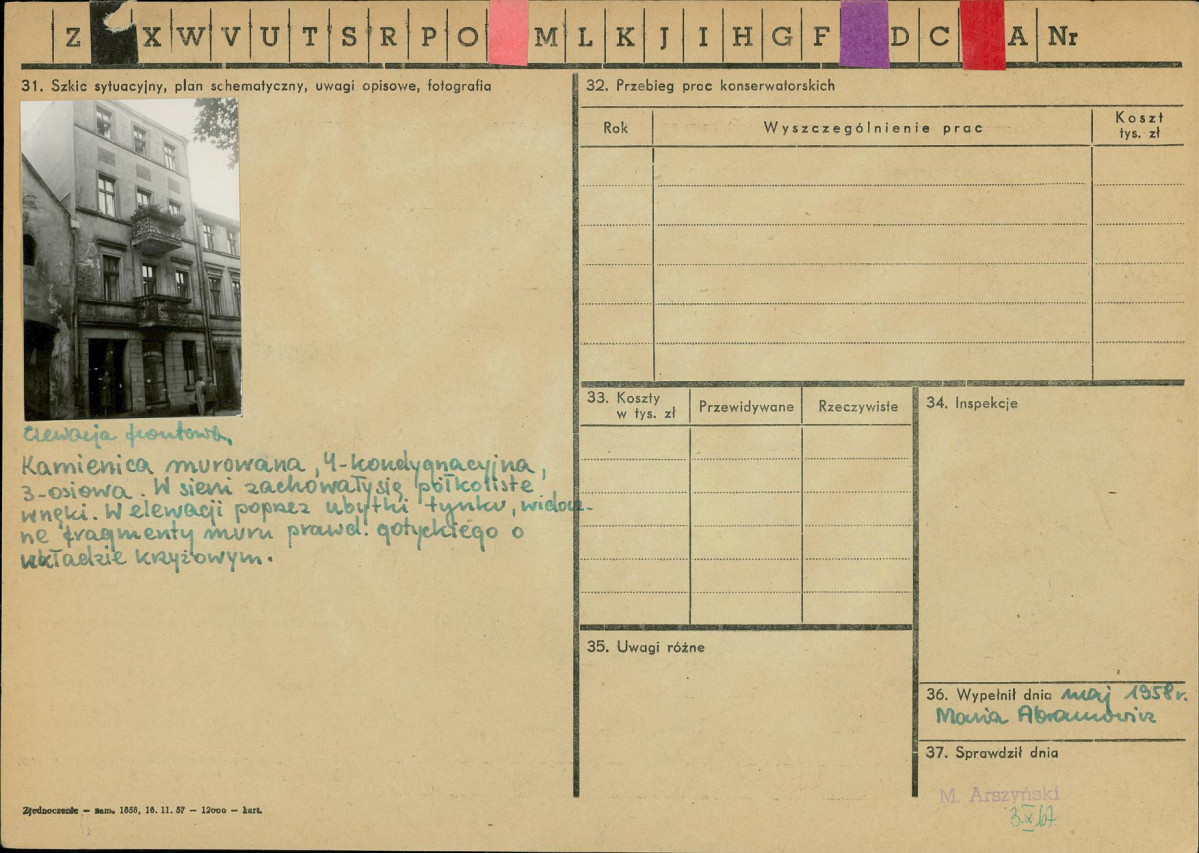 Z X W V U T S R P O M L K J I H G F D C A Nr
31. Szkic sytuacyjny, plan schematyczny, uwagi opisowe, fotografia
Elewacja frontowa.
Kamienica murowana, 4-kondygnacyjna,
3-osiowa. W sieni zachowały się półkoliste
wnęki. W elewacji poprzez ubytki tynku, widocz-
ne fragmenty muru prawd. gotyckiego o
układzie krzyżowym.
Zjednoczenie — zam. 1858, 16. 11. 57 — 12000 — kart.
32. Przebieg prac konserwatorskich
Rok Wyszczególnienie prac Koszt
tys. zł
33. Koszty
w tys. zł Przewidywane Rzeczywiste
34. Inspekcje
35. Uwagi różne
36. Wypełnił dnia maj 1958 r.
Maria Abramowicz
37. Sprawdził dnia
M. Arszyński
3.IX.67